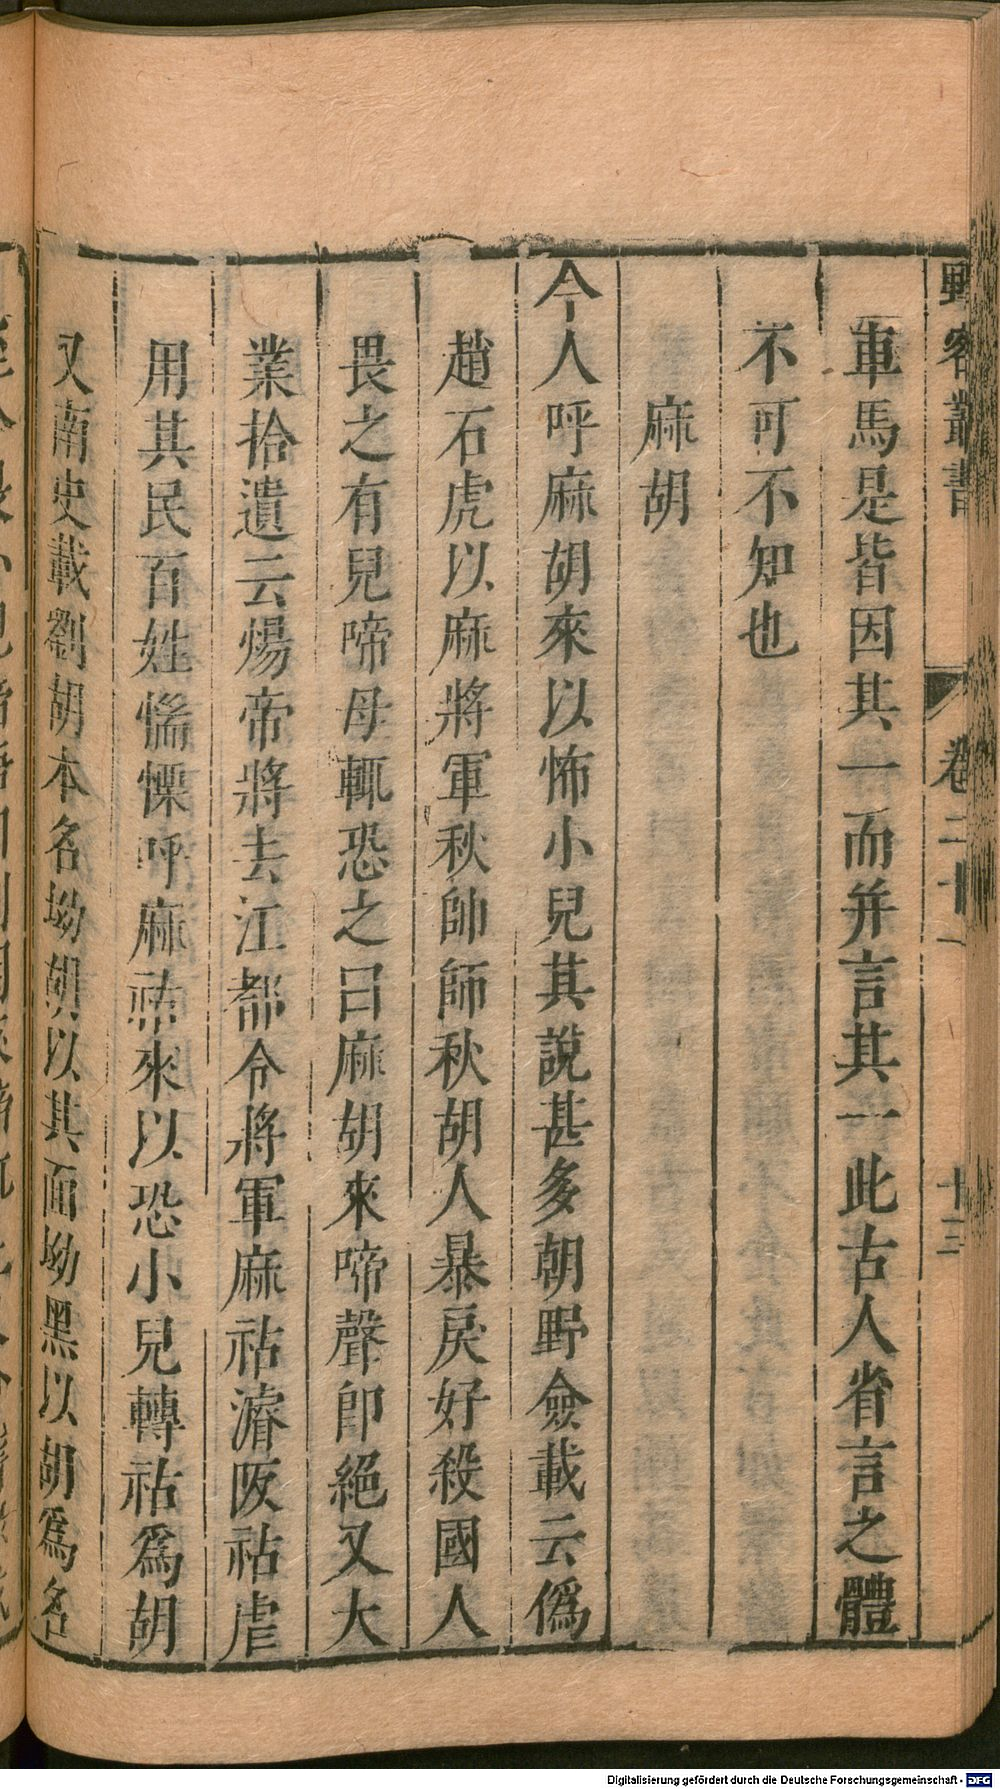 野客叢書 卷二十一 十三
車馬是皆因其一而并言其一此古人省言之體
不可不知也
麻胡
今人呼麻胡來以怖小兒其說甚多朝野僉載云偽
趙石虎以麻將軍秋帥師秋胡人暴戾好殺國人
畏之有兒啼母輒恐之曰麻胡來啼聲即絕又大
業拾遺云煬帝將去江都令將軍麻祜濬阪祜虐
用其民百姓惴慄呼麻祜來以恐小兒轉祜為胡
又南史載劉胡本名坳胡以其面坳黑以胡為名
Digitalisierung gefördert durch die Deutsche Forschungsgemeinschaft - DFG